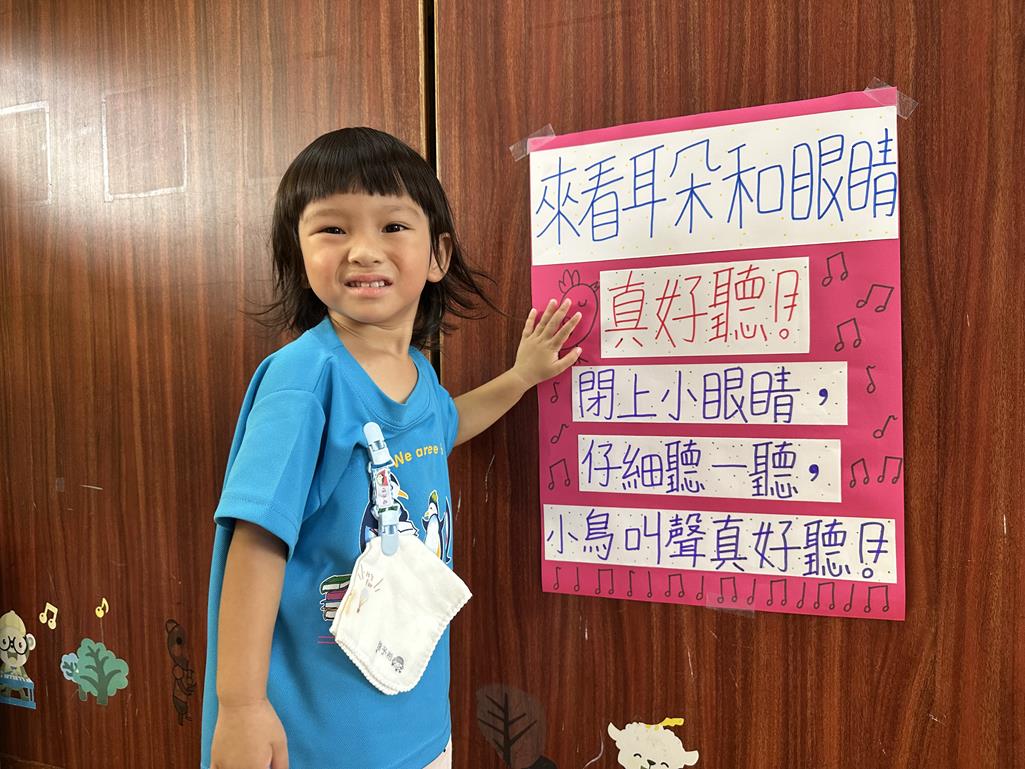 來看耳朵和眼睛
真好聽！
閉上小眼睛，
仔細聽一聽，
小鳥叫聲真好聽！
We